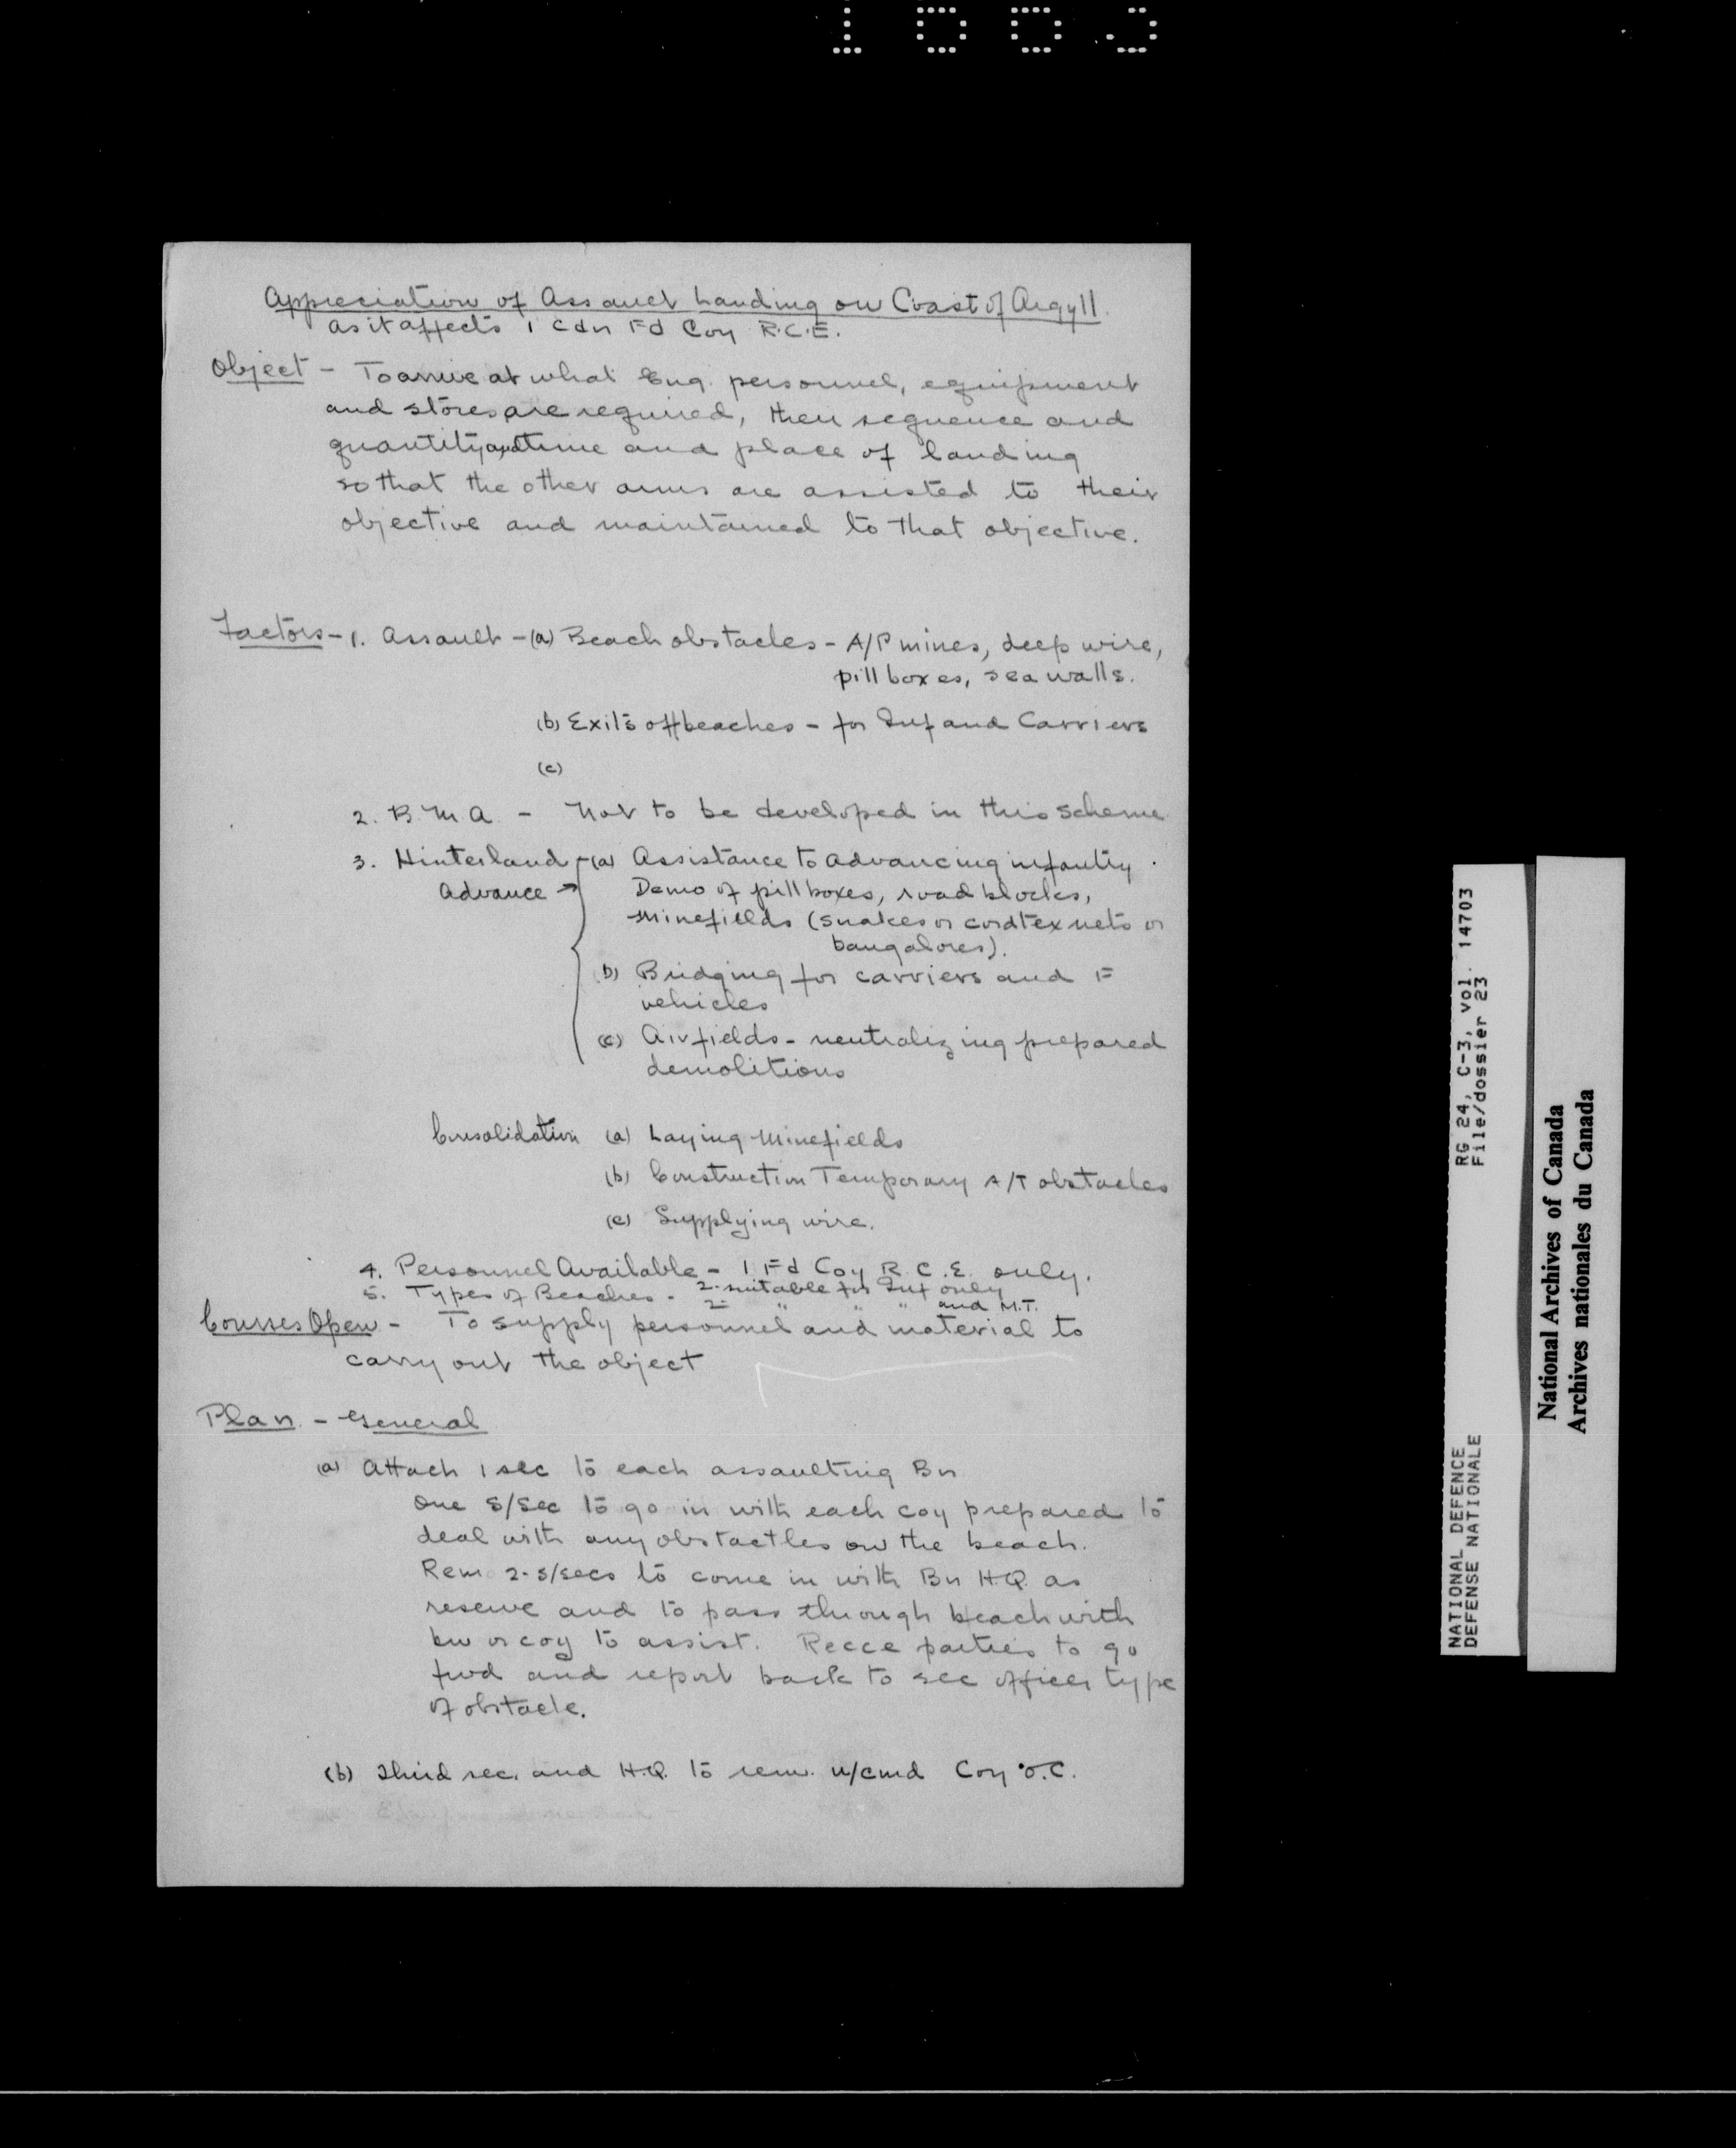 Appreciation of Assault Landing on Coast of Argyll.
as it affects 1 Cdn Fd Coy R.C.E.
Object - To arrive at what Eng. personnel, equipment
and stores are required, their sequence and
quantity and time and place of landing
so that the other arms are assisted to their
objective and maintained to that objective.
Factors - 1. Assault - (a) Beach obstacles - A/P mines, deep wire,
pill boxes, sea walls.
(b) Exits off beaches - for Inf and Carriers
(c)
2. B.M.A. - Not to be developed in this scheme
3. Hinterland - (a) Assistance to advancing infantry.
Advance → Demo of pill boxes, road blocks,
minefields (snakes or cordtex nets or
bangalores).
(b) Bridging for carriers and F
vehicles
(c) Airfields - neutralizing prepared
demolitions
Consolidation (a) Laying Minefields
(b) Construction Temporary A/T obstacles
(c) Supplying wire.
4. Personnel Available - 1 Fd Coy R.C.E. only.
5. Types of Beaches - 2 - suitable for Inf only
2 - " " " and M.T.
Courses Open - To supply personnel and material to
carry out the object
Plan - General
(a) Attach 1 sec to each assaulting Bn
One S/Sec to go in with each coy prepared to
deal with any obstactles on the beach.
Rem 2 - S/Secs to come in with Bn H.Q. as
reserve and to pass through beach with
bn or coy to assist. Recce parties to go
fwd and report back to sec officer type
of obstacle.
(b) Third sec. and H.Q. to rem. u/cmd Coy O.C.
RG 24, C-3, vol. 14703
File/dossier 23
NATIONAL DEFENCE
DEFENSE NATIONALE
National Archives of Canada
Archives nationales du Canada